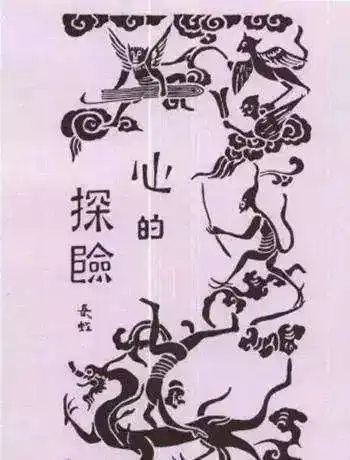 心的
探險
長虹